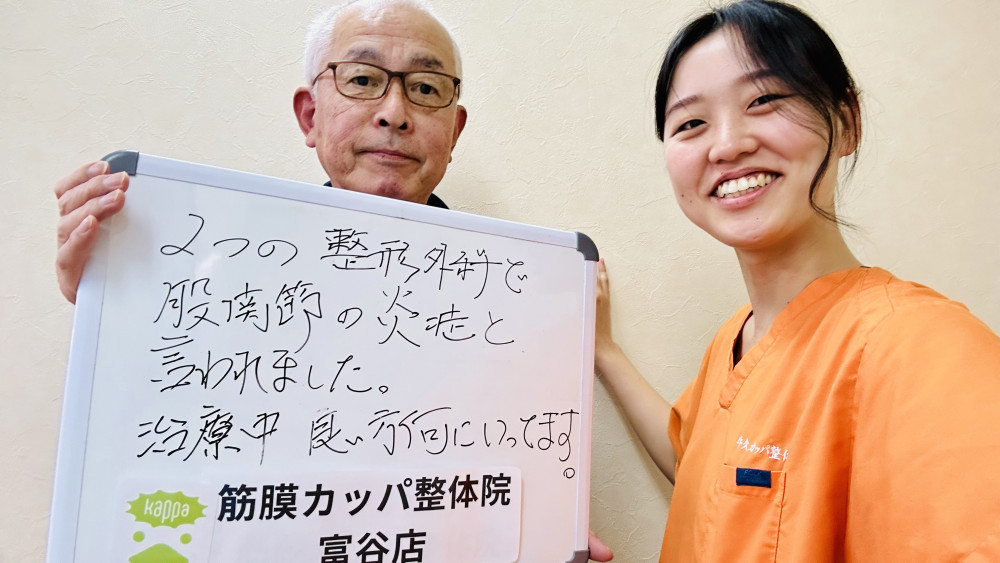 2つの 整形外科で
股関節の炎症と
言われました。
治療中 良い方向にいってます。
kappa
筋膜カッパ整体院
富谷店
カッパ整体